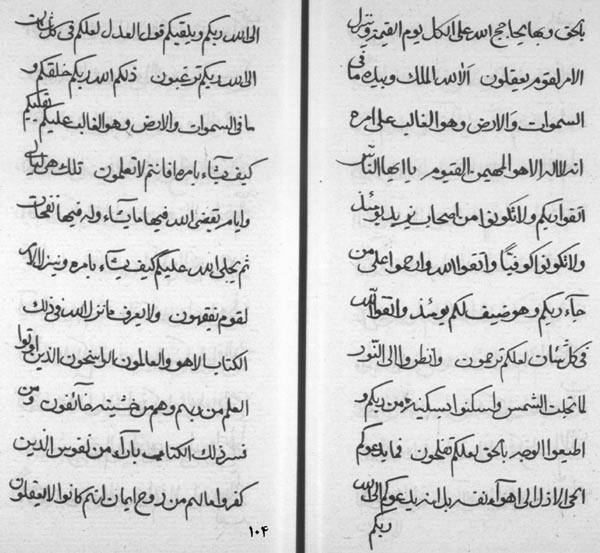 بالحق وبها يحاجج الله على الكل يوم القيمة وينزل
الامر لقوم يعقلون الا لله الملك وبيده ما فى
السموات والارض وهو الغالب على امره
انه لا اله الا هو المهيمن القيوم يا ايها الناس
اتقوا ربكم ولا تكونوا من اصحاب يزيد يومئذ
ولا تكونوا كوفيّا واتقوا الله وارحموا على من
جاء ربكم وهو ضيف لكم يومئذ واتقوا الله
فى كل شأن لعلكم ترحمون وانظروا الى النور
لما تجلت الشمس واسكنوا بسكينة من ربكم و
اطيعوا الوصى بالحق لعلكم تفلحون فما يدعوكم
الحى الازل الى اهواء نفسه بل انه يدعوكم الى الله
ربكم
الى الله ربكم ويلقيكم قول العدل لعلكم فى كل شأن
الى الله ربكم ترغبون ذلكم الله ربكم خلقكم و
ما فى السموات والارض وهو الغالب عليكم يقلبكم
كيف يشاء بامره فانتم لا تعلمون تلك هى ليال
وايام تقضى الله فيها ما يشاء وله فيها نفحات
ثم يجلى الله عليكم كيف يشاء بامره وينزل الامر
لقوم يفقهون ولا يعرف ما نزل الله فى ذلك
الكتاب الا هو والعالمون الراسخون الذين اوتوا
العلم من ربهم وهم من خشيته خائفون ومن
فسر ذلك الكتاب بآراء من نفوس الذين
كفروا ما لهم من روح ايمان انهم كانوا لا يعقلون
١٠٤